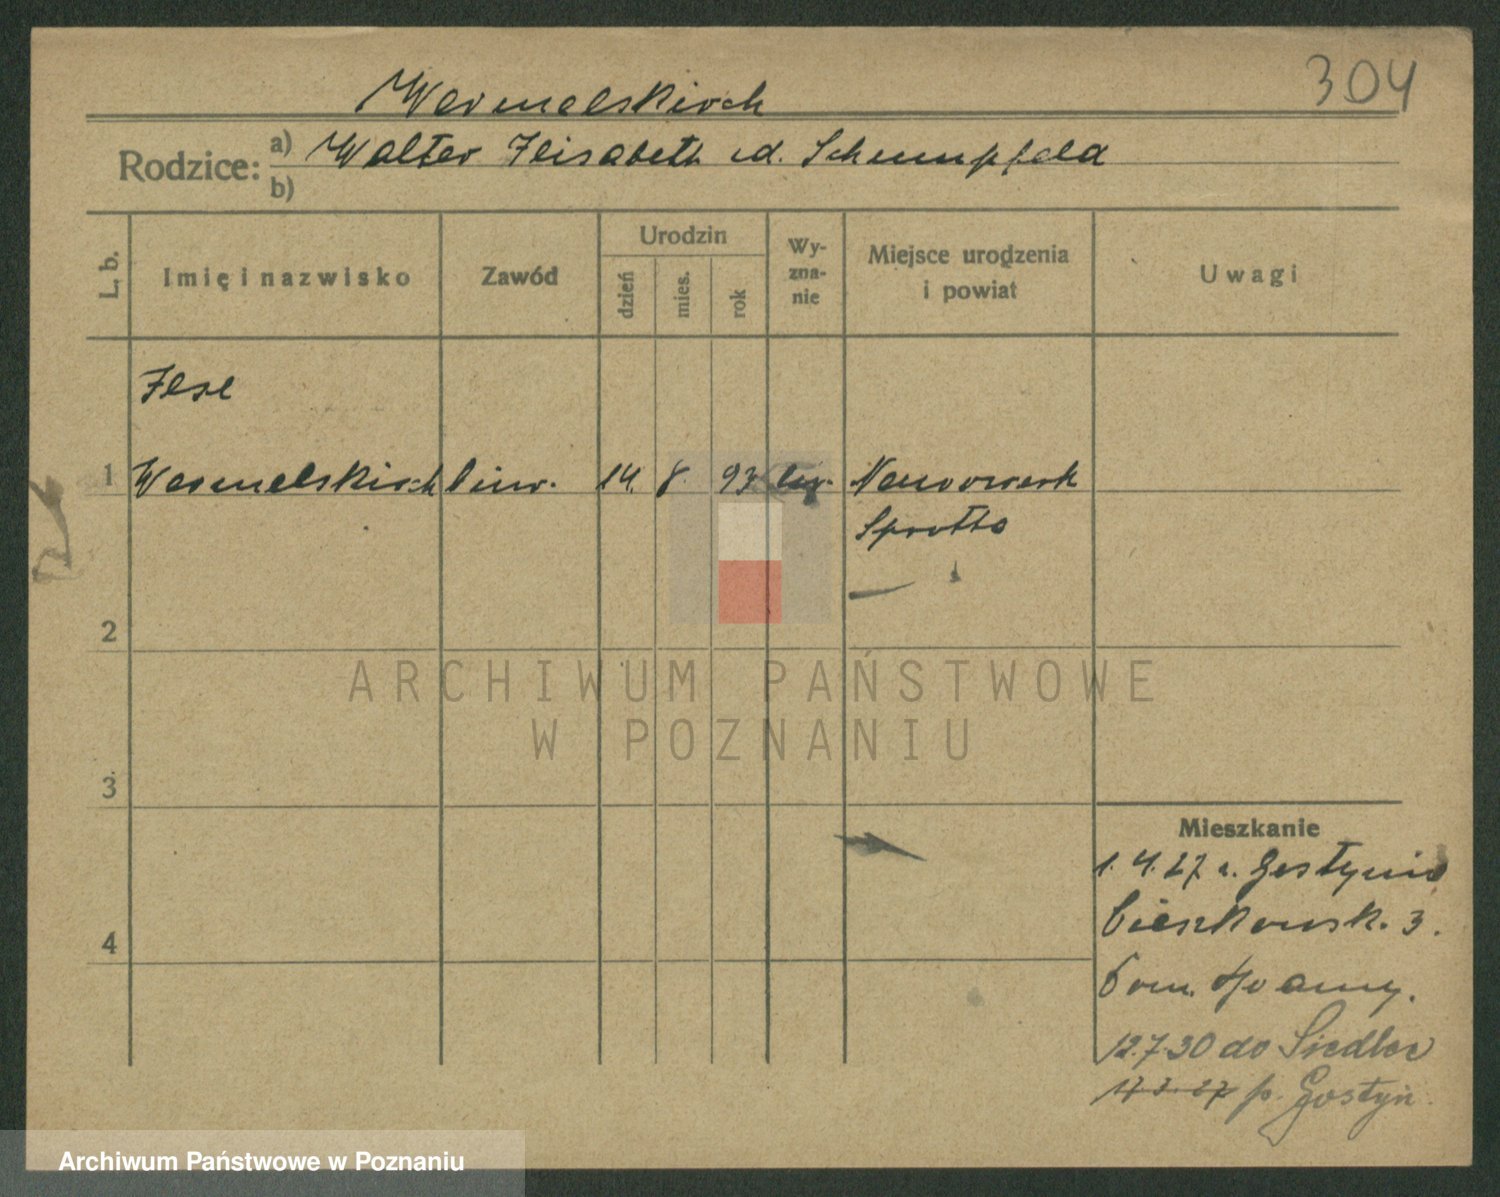 304
Wermelskirch
Rodzice:
a) Walter Elisabeth z d. Schumpfeld
b)
L. b.
Imię i nazwisko
Zawód
Urodzin
dzień
mies.
rok
Wy-
zna-
nie
Miejsce urodzenia
i powiat
Uwagi
Ilse
1 Wermelskirch biur. 14. 8. 93 Neuvorwerk
Sprotta
2
3
4
Mieszkanie
1.4.27 z Gostynia
Cieszkowsk. 3.
12.7.30 do Siedlec
17.3.27 p. Gostyń.
ARCHIWUM PAŃSTWOWE
W POZNANIU
Archiwum Państwowe w Poznaniu